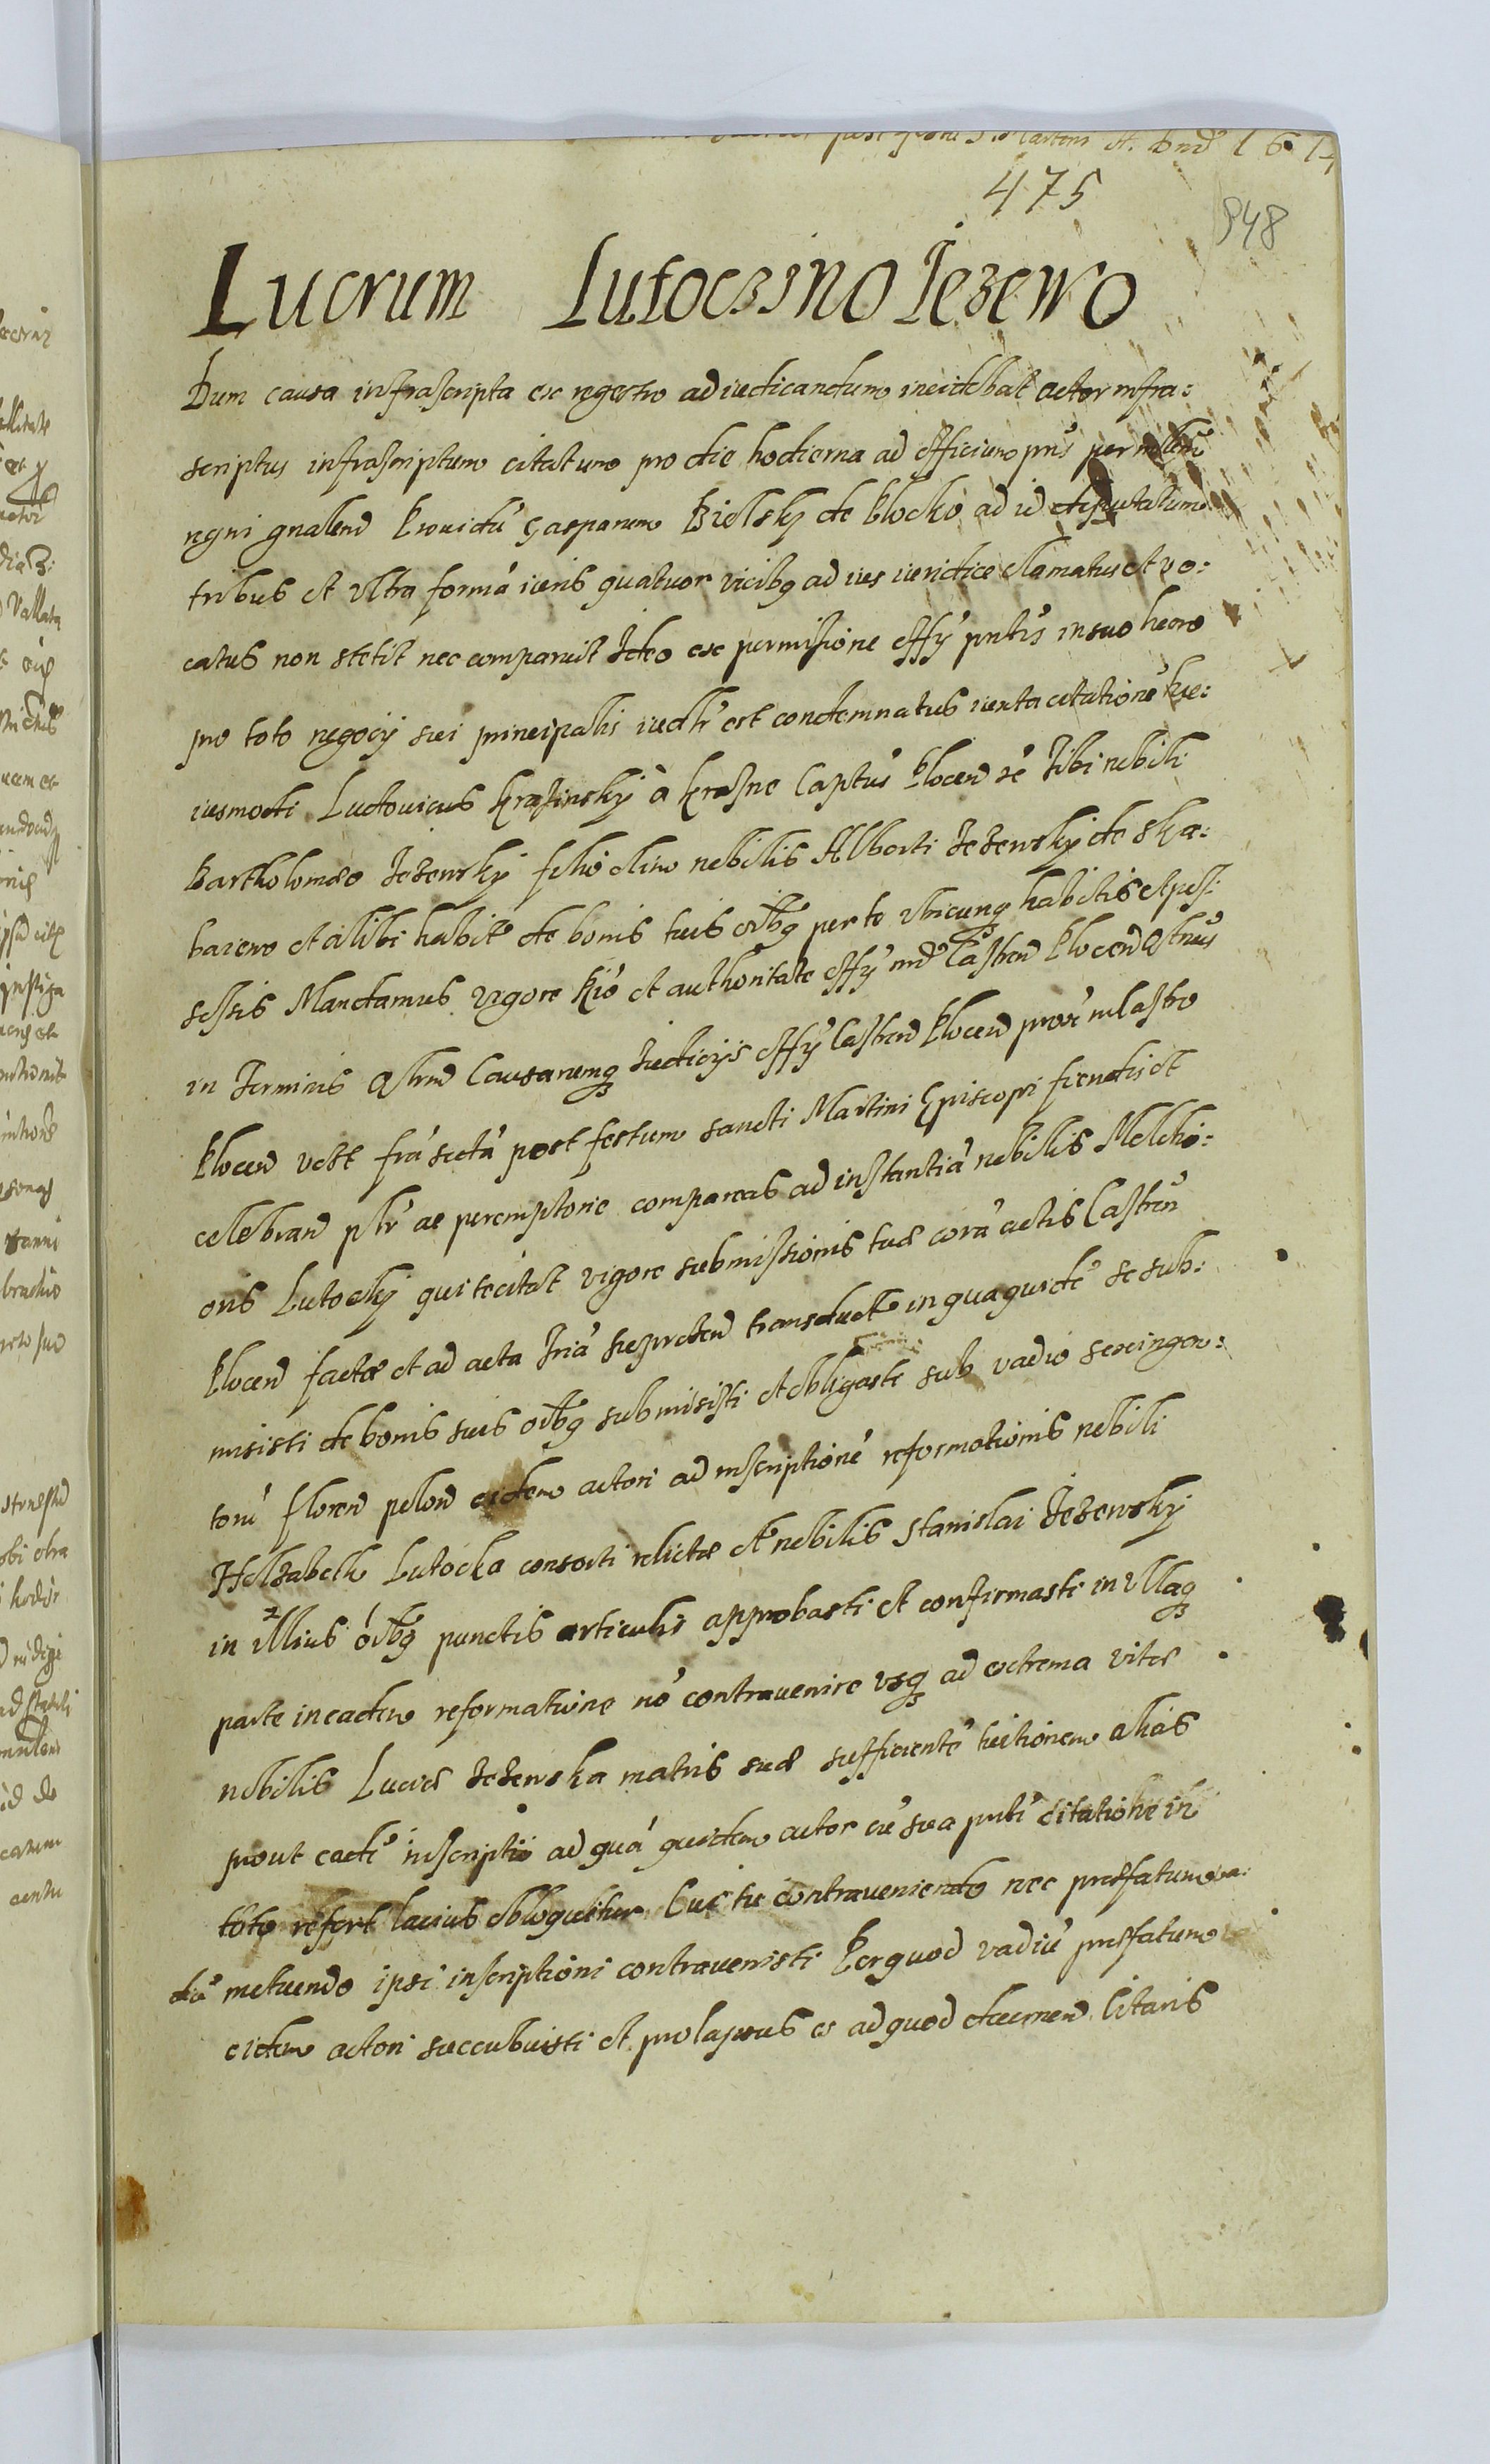 post Martini A. Dni 161
475
948
Lucrum Lutoczino Jezewo
Dum causa infrascripta ex regestro ad iudicandum incidebat actor infra:
scriptus infrascriptum citatum pro die hodierna ad officium pns per mlem
regni gnalem Prouidu Casparum Bielsky de Plocko ad id deputatum
tribus et vltra forma iuris quatuor vicibq ad ius iuridice clamatus et vo:
catus non stetit nec comparuit Ideo ex permissione offy pntis in suo lucro
pro toto negocy sui principalis iudtr est condemnatus iuxta citatione hu:
iusmodi Ludouicus Krasinsky à Krasne Captus Plocen se Tibi nobili
Bartholomæo Jezewsky filio olim nobilis Alberti Jezewsky de Ska:
baiewo et alibi habit de bonis tuis oibq per te vbicunq habitis et pos:
sessis Mandamus vigore et authoritate offy nrd Castren Plocen Qtnus
in Terminis Qtrnd Causarumq Iudicijs offy Castren Plocen prox in Castro
Plocen post festum sancti Martini Episcopi fiendis et
celebrand pltr ac peremptorie compareas ad instantia nobilis Melchi:
oris Lutocky qui te citat vigore submissionis tuæ cora actis Castren
Plocen factæ et ad acta Tria Sieprcen transducte in qua quide se sub:
misisti de bonis suis oibq submisisti et obligasti sub vadio sexingen:
toru floren polon eidem actori ad inscriptione reformationis nobili
Helzabeth Lutocka consorti relictæ et nobilis Stanislai Jezewsky
in illius oibq punctis articulis approbasti et confirmasti in vllaq
parte in eadem reformatione no contravenire vsq ad extrema vitæ
nobilis Luciæ Jezewska matris suæ sufficiente tuitionem alias
prout eade inscriptio ad qua quidem actor cu sua pnti citatione in
toto refert lacius obloquitur Cui tu contraveniendo nec præfatum va:
diu metuendo ipsi inscriptioni contravenisti Per quod vadiu præfatum
eidem actori succubuisti et prolapsus es ad quod decernend Citaris